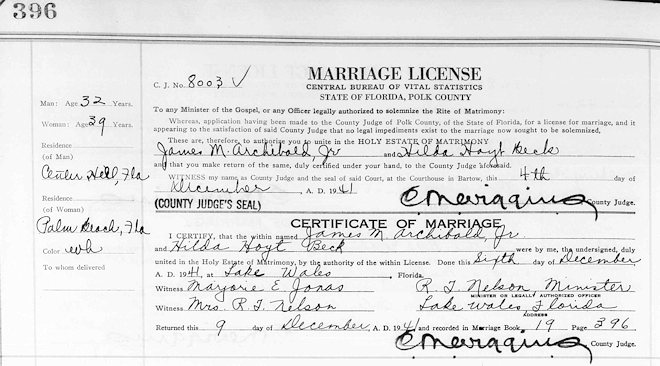 396
C. J. No. 8003 ✓
MARRIAGE LICENSE
CENTRAL BUREAU OF VITAL STATISTICS
STATE OF FLORIDA, POLK COUNTY
Man: Age 32 Years.
Woman: Age 39 Years.
Residence
(of Man)
Center Hill, Fla
Residence
(of Woman)
Palm Beach, Fla
Color wh
To whom delivered
To any Minister of the Gospel, or any Officer legally authorized to solemnize the Rite of Matrimony:
Whereas, application having been made to the County Judge of Polk County, of the State of Florida, for a license for marriage, and it
appearing to the satisfaction of said County Judge that no legal impediments exist to the marriage now sought to be solemnized,
These are, therefore, to authorize you to unite in the HOLY ESTATE OF MATRIMONY
James M. Archibald, Jr and Hilda Hoyt Beck
and that you make return of the same, duly certified under your hand, to the County Judge aforesaid.
WITNESS my name as County Judge and the seal of said Court, at the Courthouse in Bartow, this 4th day of
December, A. D. 1941
(COUNTY JUDGE'S SEAL)
County Judge.
CERTIFICATE OF MARRIAGE
I CERTIFY, that the within named James M. Archibald, Jr.
and Hilda Hoyt Beck were by me, the undersigned, duly
united in the Holy Estate of Matrimony, by the authority of the within License. Done this Sixth day of December
A. D. 1941, at Lake Wales, Florida.
Witness Marjorie E. Jonas R. T. Nelson Minister
MINISTER OR LEGALLY AUTHORIZED OFFICER
Witness Mrs. R. T. Nelson Lake Wales, Florida
ADDRESS
Returned this 9 day of December, A. D. 1941 and recorded in Marriage Book 19 Page 396
County Judge.